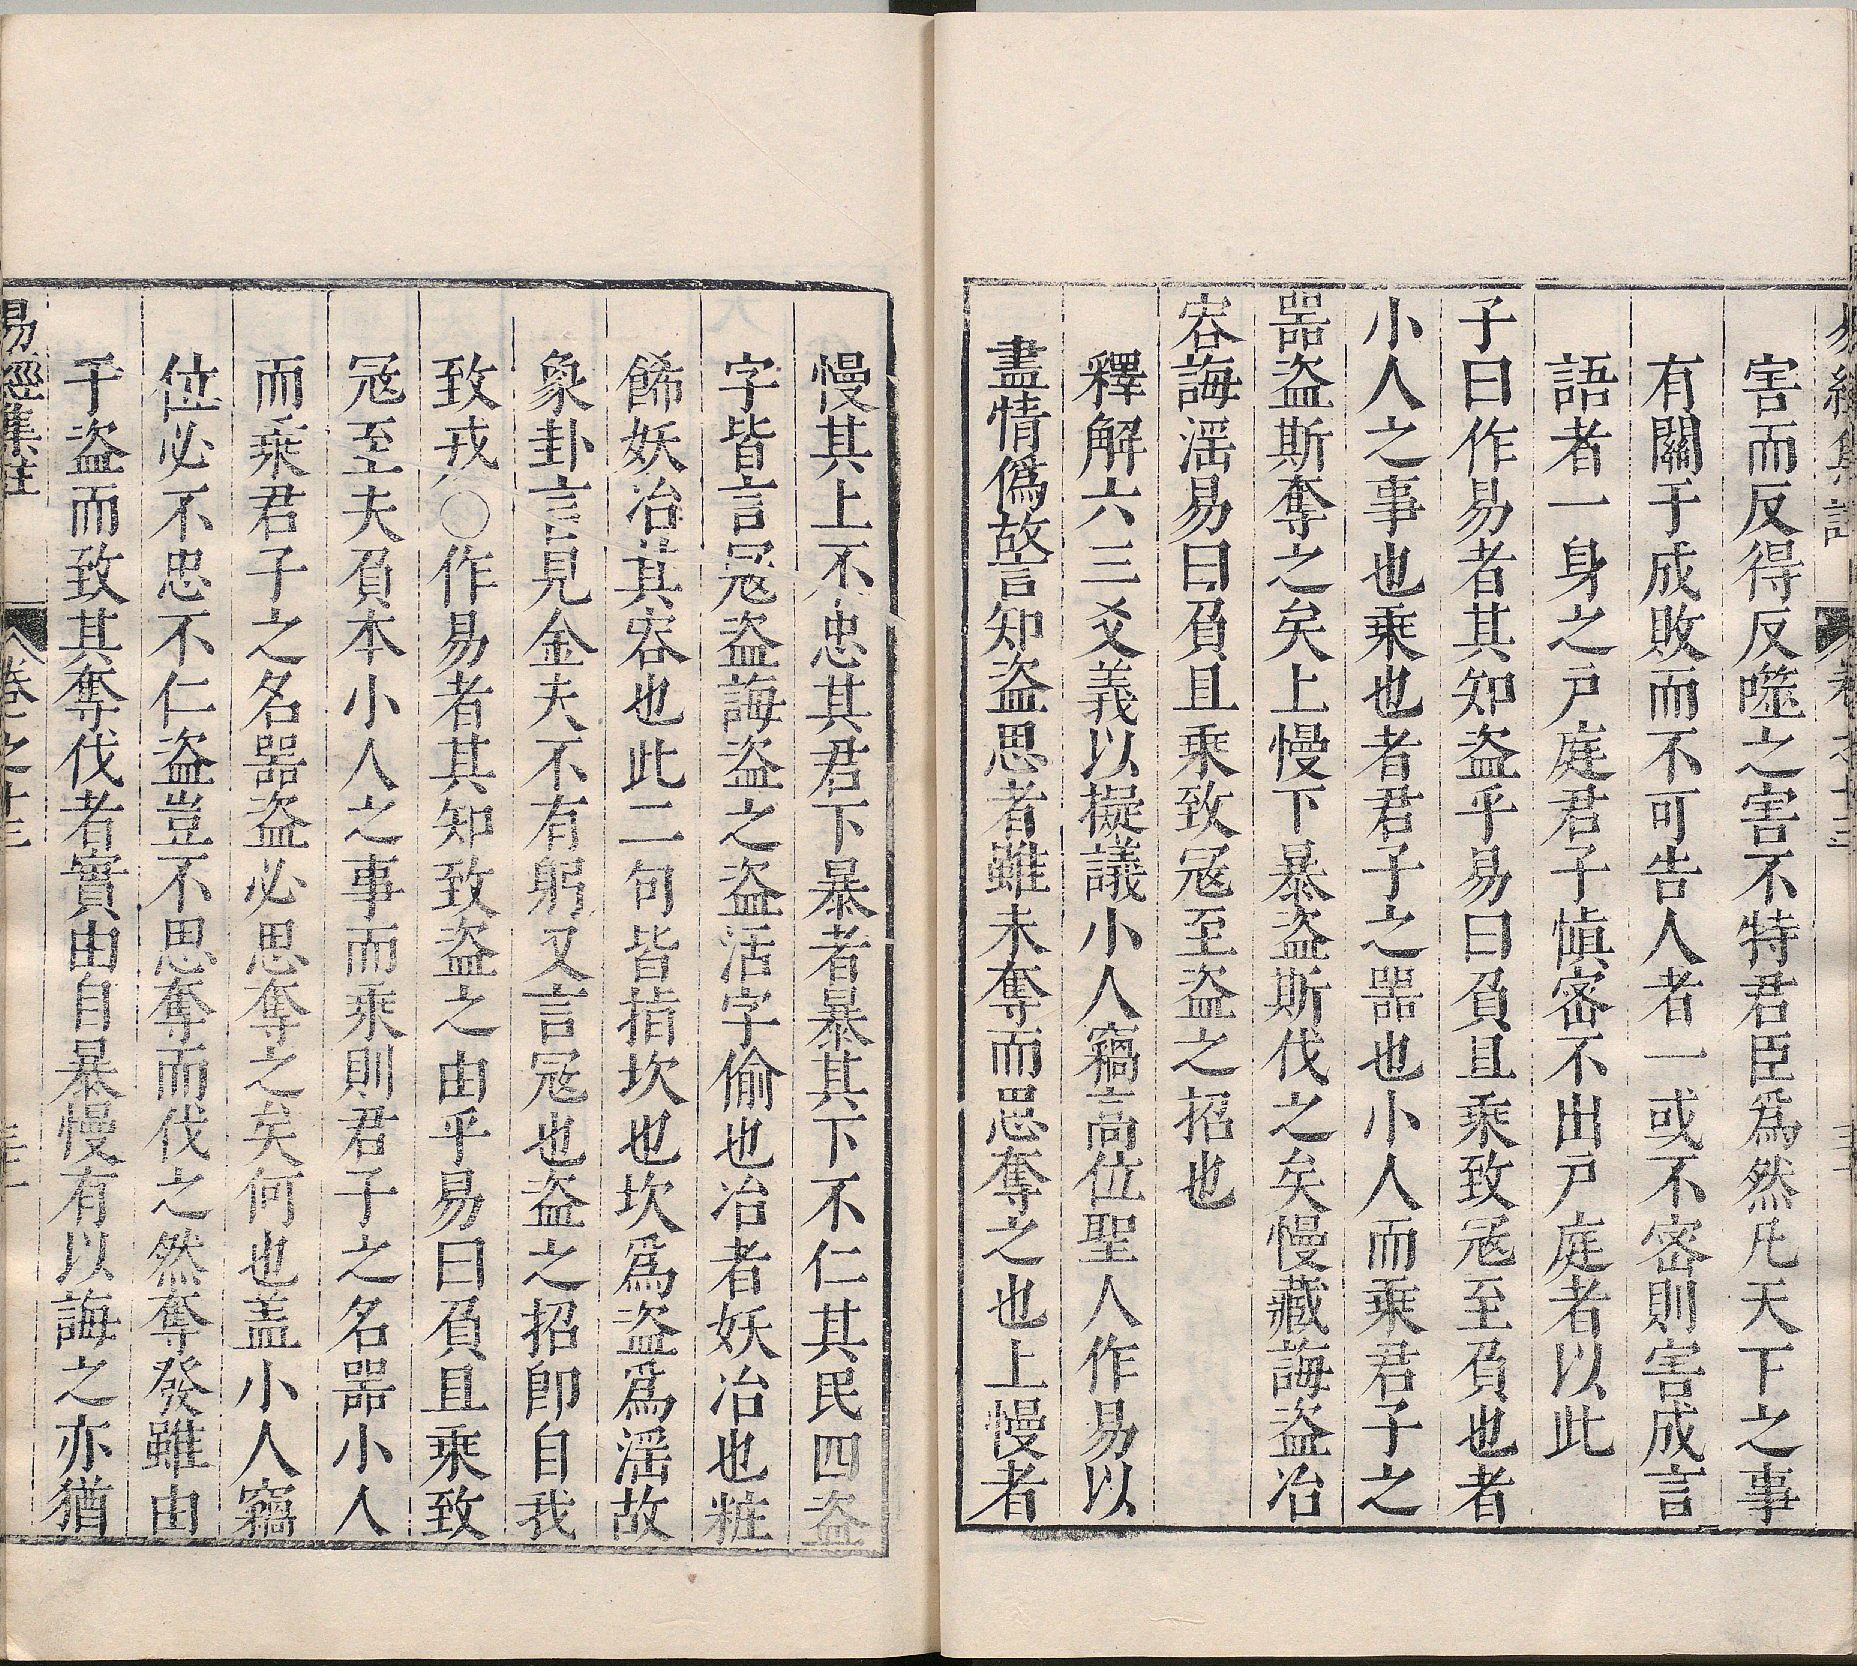 害而反得反噬之害不特君臣爲然凡天下之事
有關于成敗而不可告人者一或不密則害成言
語者一身之戸庭君子慎密不出戸庭者以此
子曰作易者其知盗乎易曰負且乗致冦至負也者
小人之事也乗也者君子之噐也小人而乗君子之
噐盗斯奪之矣上慢下暴盗斯伐之矣慢藏誨盗冶
容誨滛易曰負且乗致冦至盗之招也
釋解六三爻義以擬議小人竊高位聖人作易以
盡情僞故言知盗思者雖未奪而思奪之也上慢者
慢其上不忠其君下暴者暴其下不仁其民四盗
字皆言冦盗誨盗之盗活字偷也冶者妖冶也粧
餙妖冶其容也此二句皆指坎也坎爲盗爲滛故
象卦言見金夫不有躬又言冦也盗之招即自我
致戎〇作易者其知致盗之由乎易曰負且乗致
冦至夫負本小人之事而乗則君子之名噐小人
而乗君子之名噐盗必思奪之矣何也盖小人竊
位必不忠不仁盗豈不思奪而伐之然奪發雖由
于盗而致其奪伐者實由自暴慢有以誨之亦猶
易經集註 卷之十三 三十一